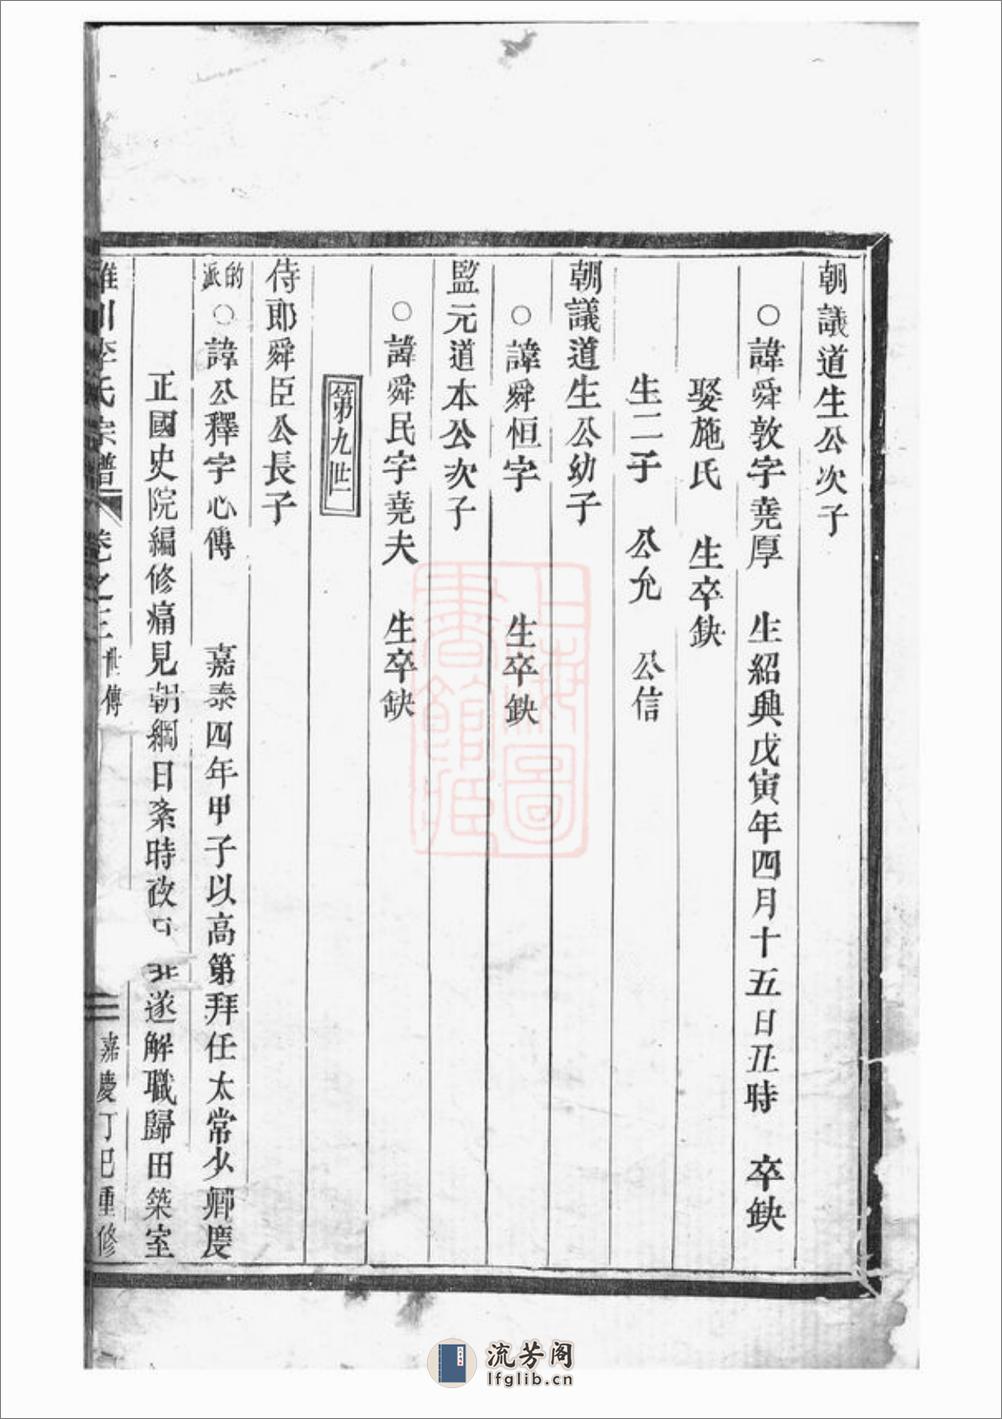 朝議道生公次子
○諱舜敦字堯厚 生紹興戊寅年四月十五日丑時 卒缺
娶施氏 生卒缺
生二子 公允 公信
朝議道生公幼子
○諱舜恒字 生卒缺
監元道本公次子
○諱舜民字堯夫 生卒缺
第九世
侍郎舜臣公長子
的派○諱公釋字心傳 嘉泰四年甲子以高第拜任太常少卿慶
正國史院編修痛見朝綱日紊時政日非遂解職歸田築室
李氏宗譜 卷之三 世傳 嘉慶丁巳重修
上海圖書館藏
流芳阁
lfglib.cn